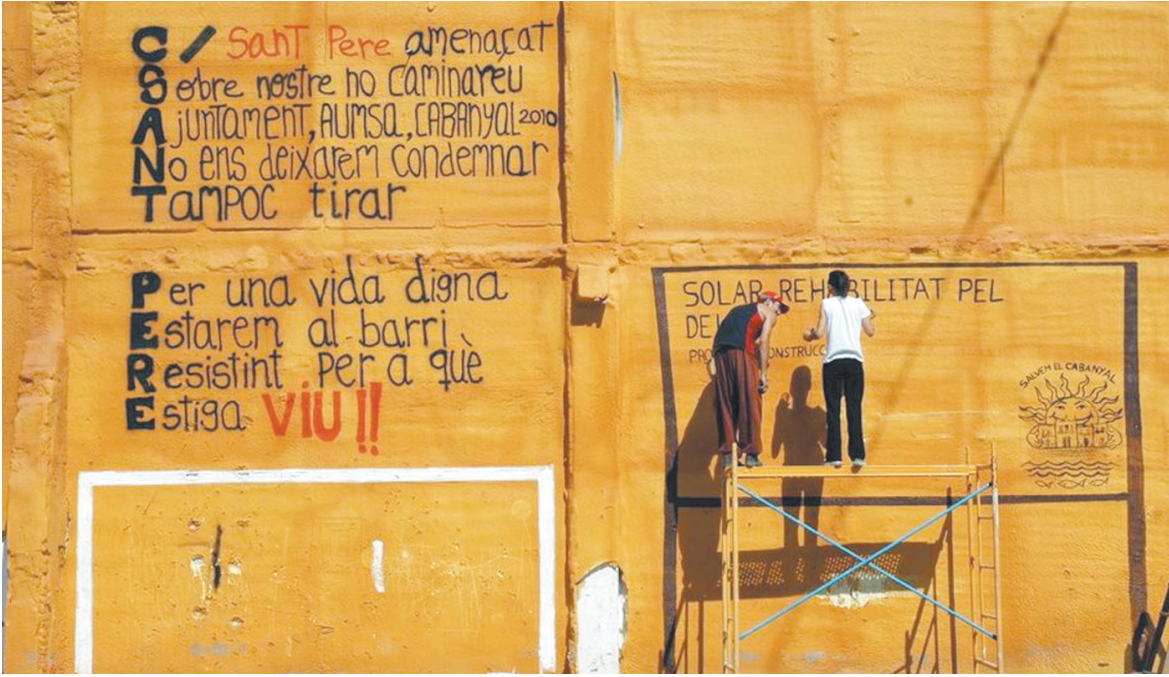 C/ SANT Pere amenaçat
Sobre nostre no caminareu
Ajuntament, AUMSA, CABANYAL 2010
No ens deixarem condemnar
Tampoc tirar
Per una vida digna
Estarem al barri
Resistint per a què
Estiga VIU!!
SOLAR REHABILITAT PEL
SALVEM EL CABANYAL